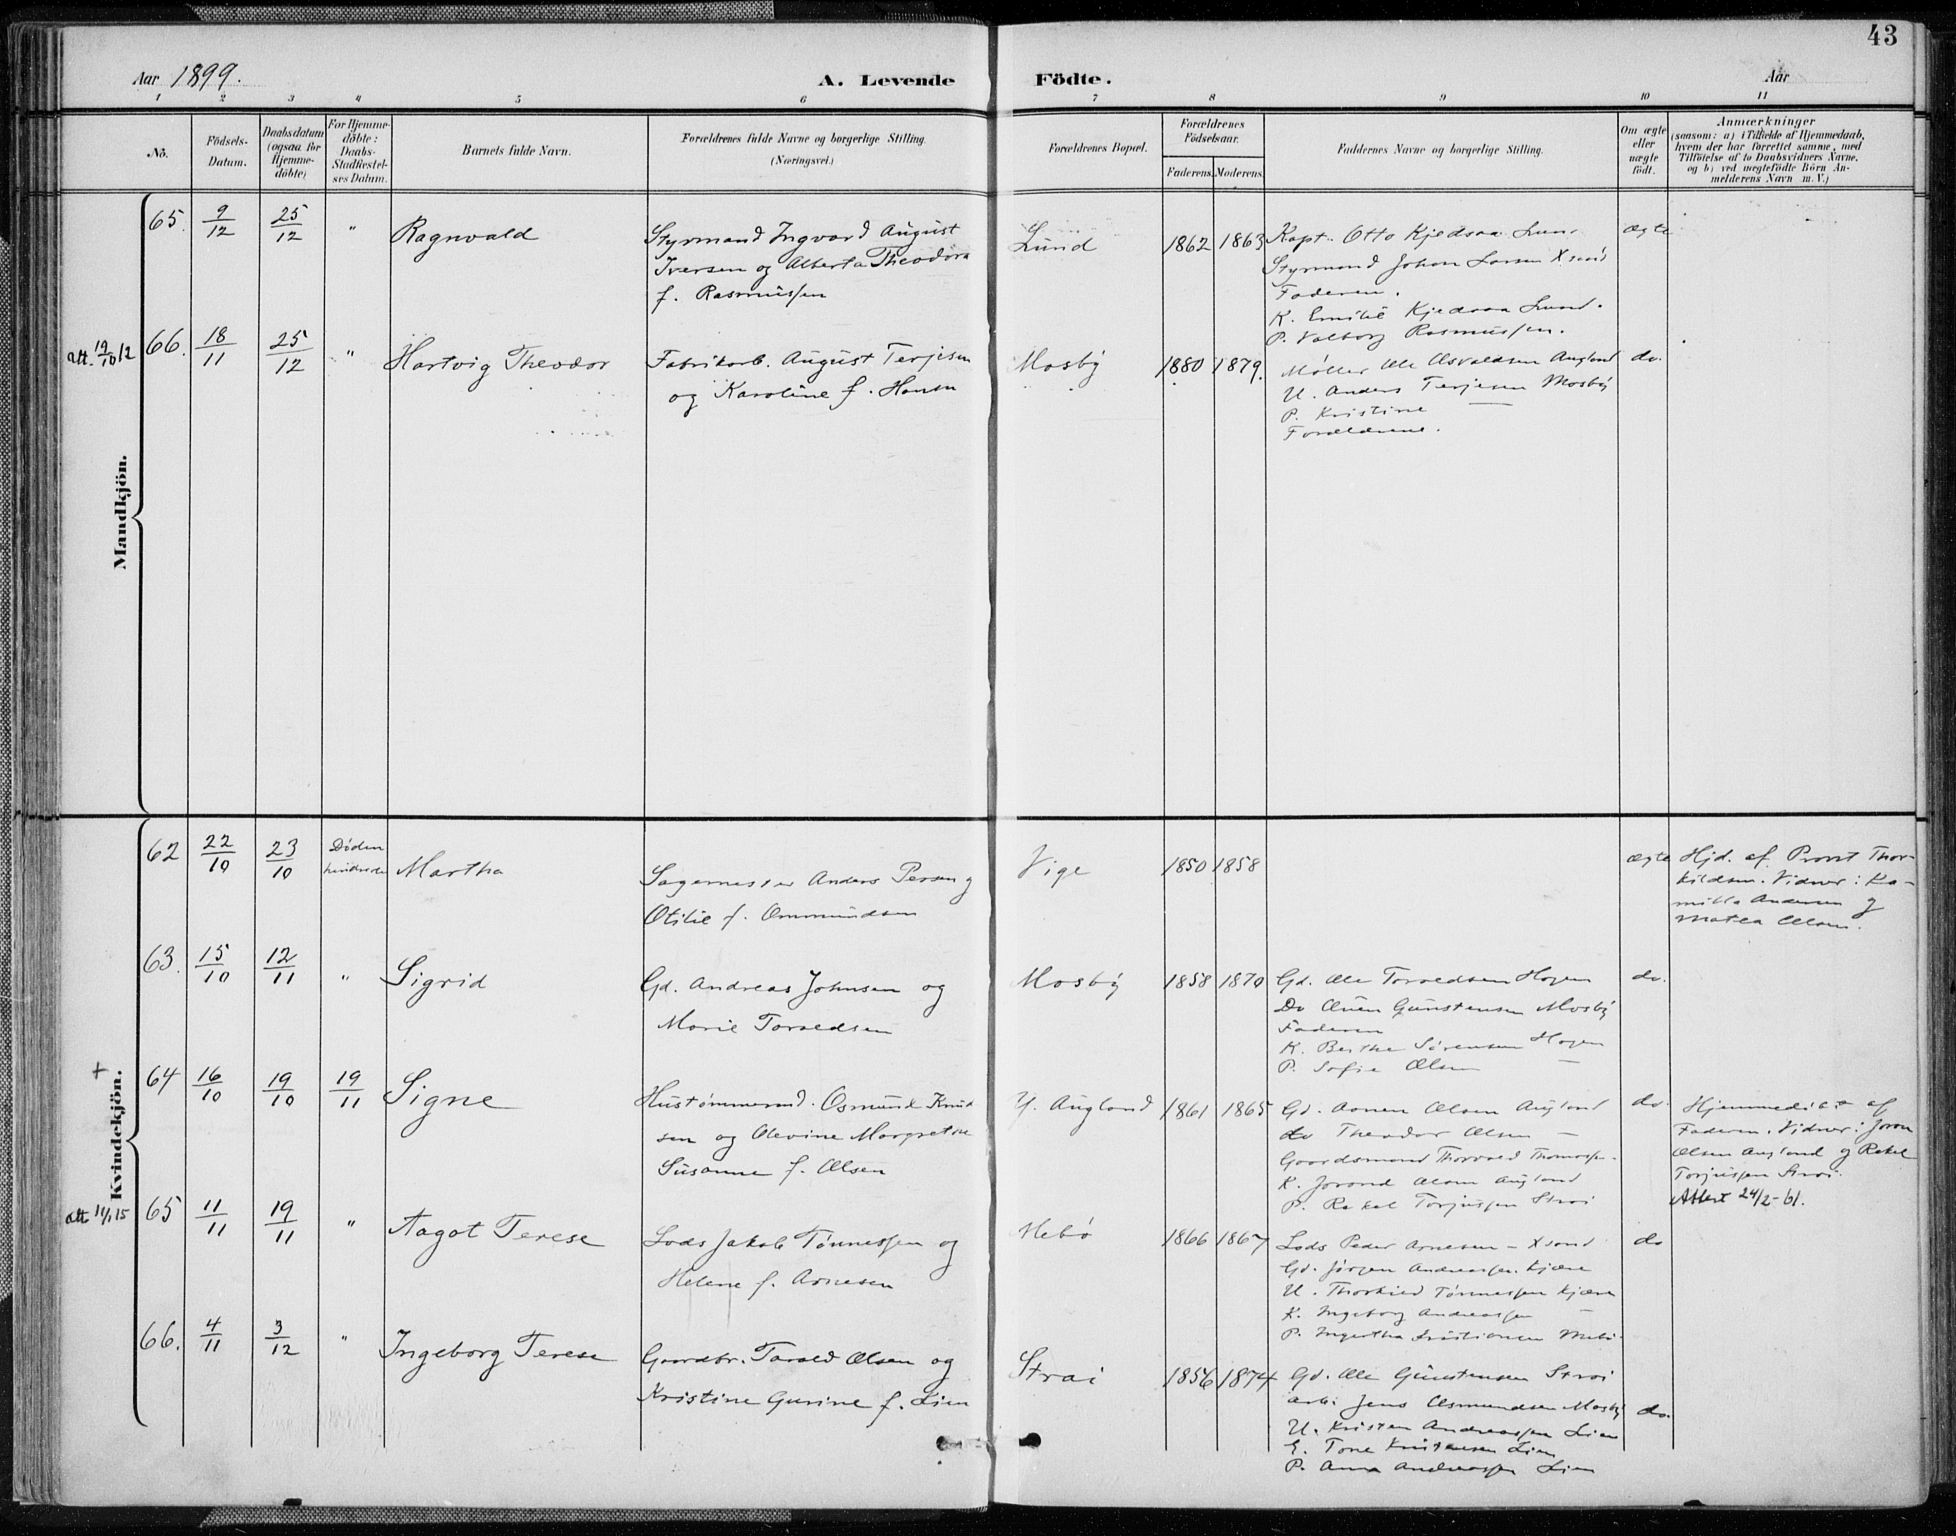 43
Aar 1899.
A. Levende Födte.
Aar
1 2 3 4 5 6 7 8 9 10 11
No.
Födsels-Datum.
Daabsdatum (ogsaa for Hjemme-döbte)
For Hjemme-döbte: Daabs-Stadfæstel-ses Datum.
Barnets fulde Navn.
Forældrenes fulde Navne og borgerlige Stilling.
(Næringsvei.)
Forældrenes Bopæl.
Forældrenes Födselsaar.
Faderens. Moderens.
Faddernes Navne og borgerlige Stilling.
Om ægte eller uægte födt.
Anmærkninger
(saasom: a) i Tilfælde af Hjemmedaab,
hvem der har forrettet samme, med
Tilföielse af to Daabsvidners Navne,
og b) ved uægtefödte Börn An-
melderens Navn m. V.)
Mandkjön.
65. 9/12 25/12 " Ragnvald
Styrmand Ingvard August
Iversen og Alberta Theodora
f. Rasmussen
Lund 1862 1863
Kapt. Otto Kjedsaa Lund
Styrmand Johan Larsen Xsand
Faderen.
K. Emilie Kjedsaa Lund.
P. Valborg Rasmussen.
ægte
att. 19/10 12
66. 18/11 25/12 " Hartvig Theodor
Fabrikarb. August Terjesen
og Karoline f. Hansen
Mosby 1880 1879.
Møller Ole Osvaldsen Augland
U. Anders Terjesen Mosby
P. Kristine —
Forældrene.
do.
Kvindekjön.
62 22/10 23/10 Døden hindrede Martha
Anders Persen og
Otilie f. Ommundsen
Vige 1850 1858
ægte
Hjd. af Provst Thor-
kildsen. Vidner: Ka-
milla Andersen og
Matea Olsen.
63. 15/10 12/11 " Sigrid
Gd. Andreas Johnsen og
Marie Taraldsen
Mosby 1858 1870
Gd. Ole Taraldsen Hagen
Do Gunstensen Mosby
Faderen
K. Berthe Sørensen Hagen
P. Sofie Olsen —
do.
+
64 16/10 19/10 19/11 Signe
Hustømmermd. Osmund Knud
sen og Olevine Margrethe
Susanne f. Olsen
Y. Augland 1861 1865
Gd. Olsen Augland
do Theodor Olsen —
Gaardsmand Thorvald
K. Jorand Olsen Augland
P. Rakel Torjussen Strai
do.
Hjemmedøbt af
Faderen. Vidner: Joran
Olsen Augland og Rakel
Torjussen Strai.
Attest 24/2-61.
att 11/1 15
65 11/11 19/11 " Aagot Terese
Lods Jakob Tønnessen og
Helene f. Arnesen
Mebø 1866 1867
Lods Peder Arnesen - Xsand
Gd. Jørgen Andreassen Kjære
U. Thorkild Tønnessen Kjære
K. Ingeborg Andreassen —
P. Kristiansen Mebø
do
66. 4/11 3/12 " Ingeborg Terese
Gaardbr. Tarald Olsen og
Kristine Gurine f. Lien
Strai 1856 1874
Gd. Ole Gunstensen Strai
Arb. Jens Osmundsen Mosby
U. Kristen Andreassen Lien
E. Tone Kristensen Lien
P. Anna Andreassen Lien
do.